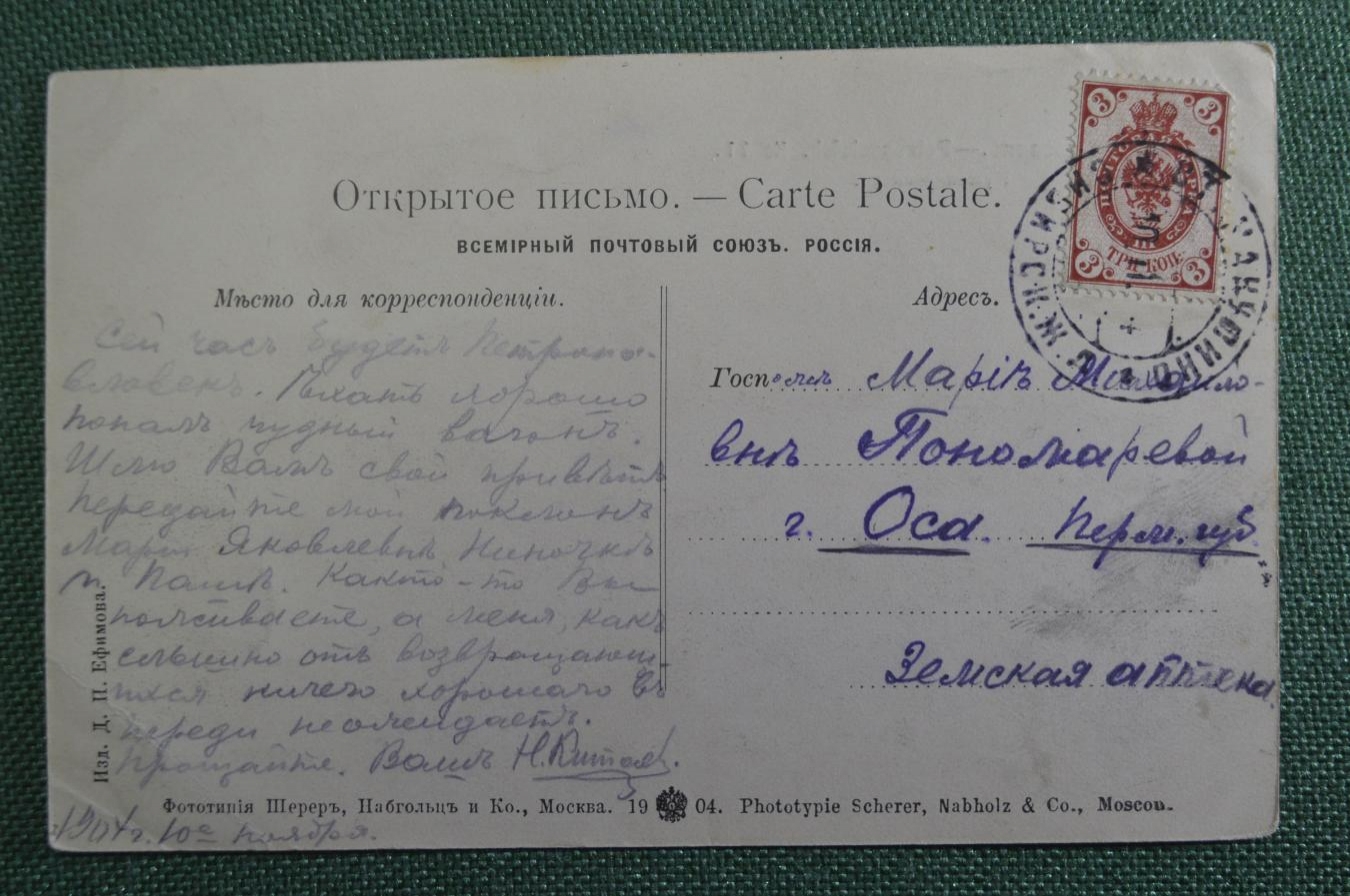 Открытое письмо. — Carte Postale.
ВСЕМІРНЫЙ ПОЧТОВЫЙ СОЮЗЪ. РОССІЯ.
Мѣсто для корреспонденціи.
Адресъ.
3 3
ПОЧТОВАЯ МАРКА
ТРИ КОП.
3 3
Сей часъ будетъ Петропа-
вловск. Ѣхать хорошо
попалъ чудный вагонъ.
Шлю Вамъ свой привѣтъ
передайте мой поклонъ
Маріи Яковлевнѣ Ниночкѣ
и Пашѣ. Какъ-то Вы
поживаете, а меня, какъ
слышно отъ возвращающи-
ихся ничего хорошаго въ
переди неожидаетъ.
Прощайте. Вашъ Н.
1904 г. 10е ноября.
Госпожѣ Маріѣ Михайло-
внѣ Пономаревой
г. Оса. Перм. губ.
Земская аптека
Изд. Д. П. Ефимова.
Фототипія Шереръ, Набгольцъ и Ко., Москва. 19 04. Phototypie Scherer, Nabholz & Co., Moscou.